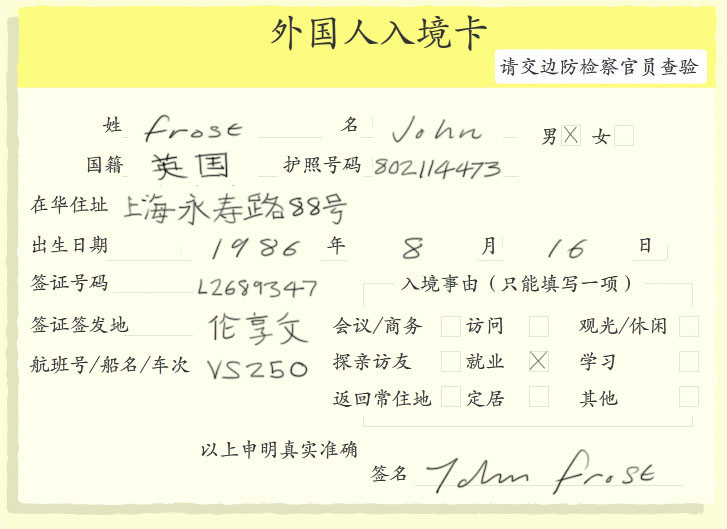 外国人入境卡
请交边防检察官员查验
姓 Frost 名 John 男 女
国籍 英国 护照号码 802114473
在华住址 上海永寿路88号
出生日期 1986 年 8 月 16 日
签证号码 L2689347 入境事由(只能填写一项)
签证签发地 伦享文 会议/商务 访问 观光/休闲
航班号/船名/车次 VS250 探亲访友 就业 学习
返回常住地 定居 其他
以上申明真实准确
签名 John Frost